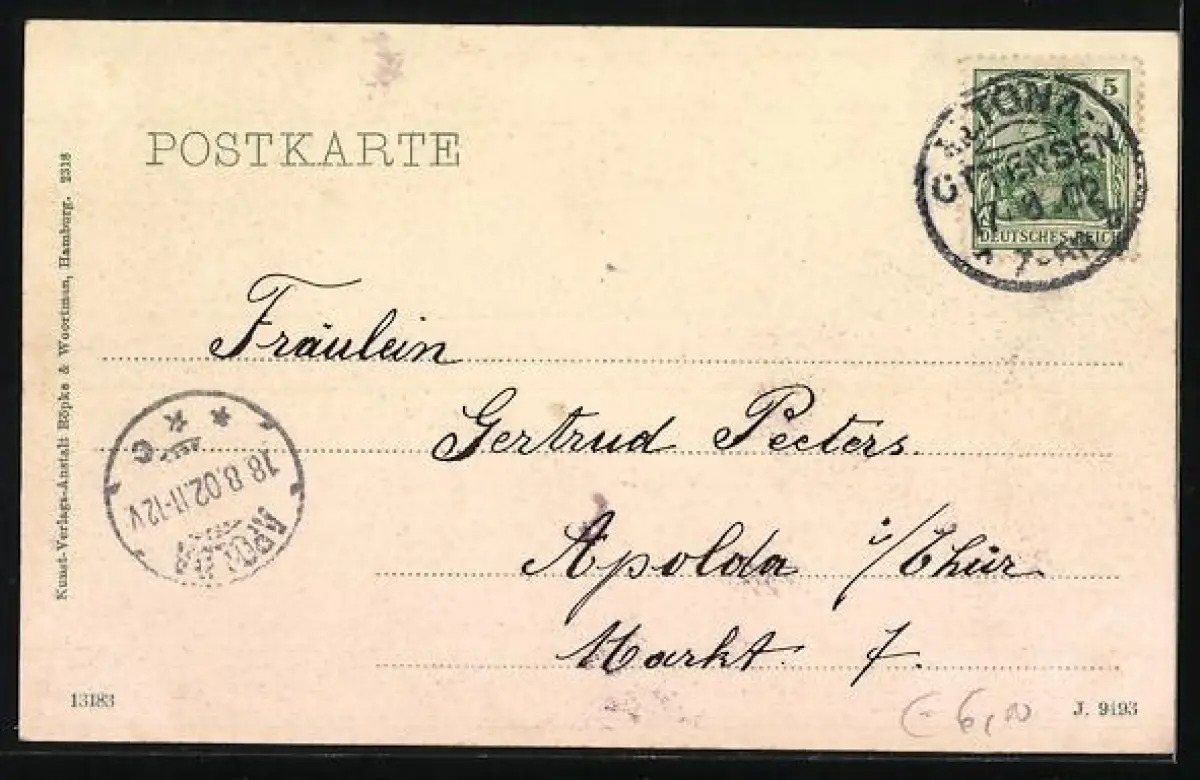 POSTKARTE
5
ALTONA-
OTTENSEN
17.8.02
7-8N
DEUTSCHES REICH
Fräulein
Gertrud Peeters.
Apolda i/Thür.
Markt 7.
C
18.8.02.11-12V
APOLDA
Kunst-Verlags-Anstalt Röpke & Woortman, Hamburg. 2318
13183
6,00
J. 9493